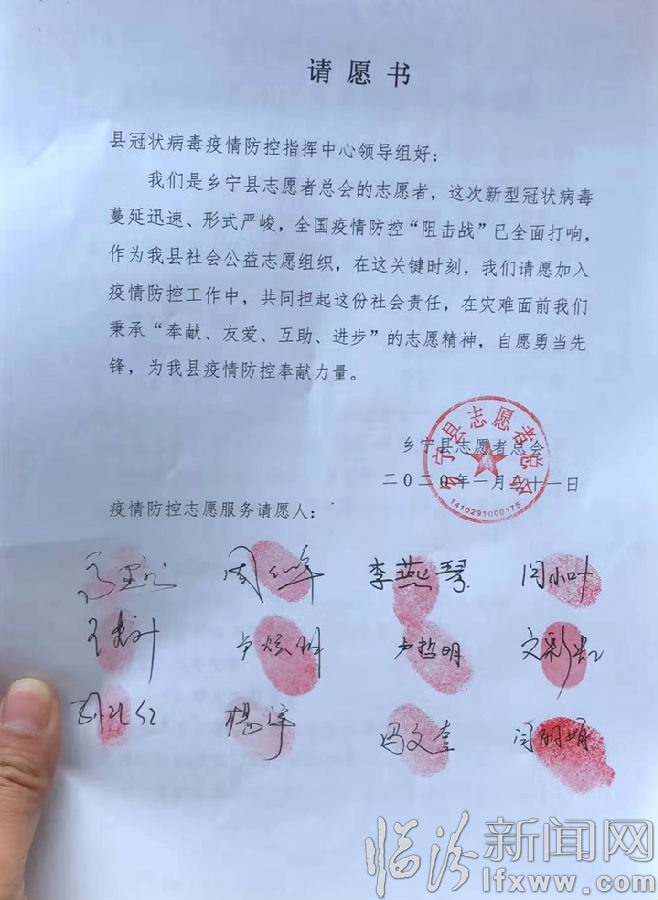 请愿书
县冠状病毒疫情防控指挥中心领导组好：
我们是乡宁县志愿者总会的志愿者，这次新型冠状病毒
蔓延迅速、形式严峻，全国疫情防控“阻击战”已全面打响，
作为我县社会公益志愿组织，在这关键时刻，我们请愿加入
疫情防控工作中，共同担起这份社会责任，在灾难面前我们
秉承“奉献、友爱、互助、进步”的志愿精神，自愿勇当先
锋，为我县疫情防控奉献力量。
乡宁县志愿者总会
乡宁县志愿者总会
1410291000175
二〇二〇年一月二十一日
疫情防控志愿服务请愿人：
李燕琴 闫小叶
卢哲明 文彩虹
杨宇 冯文奎 闫丽娟
临汾新闻网
lfxww.com